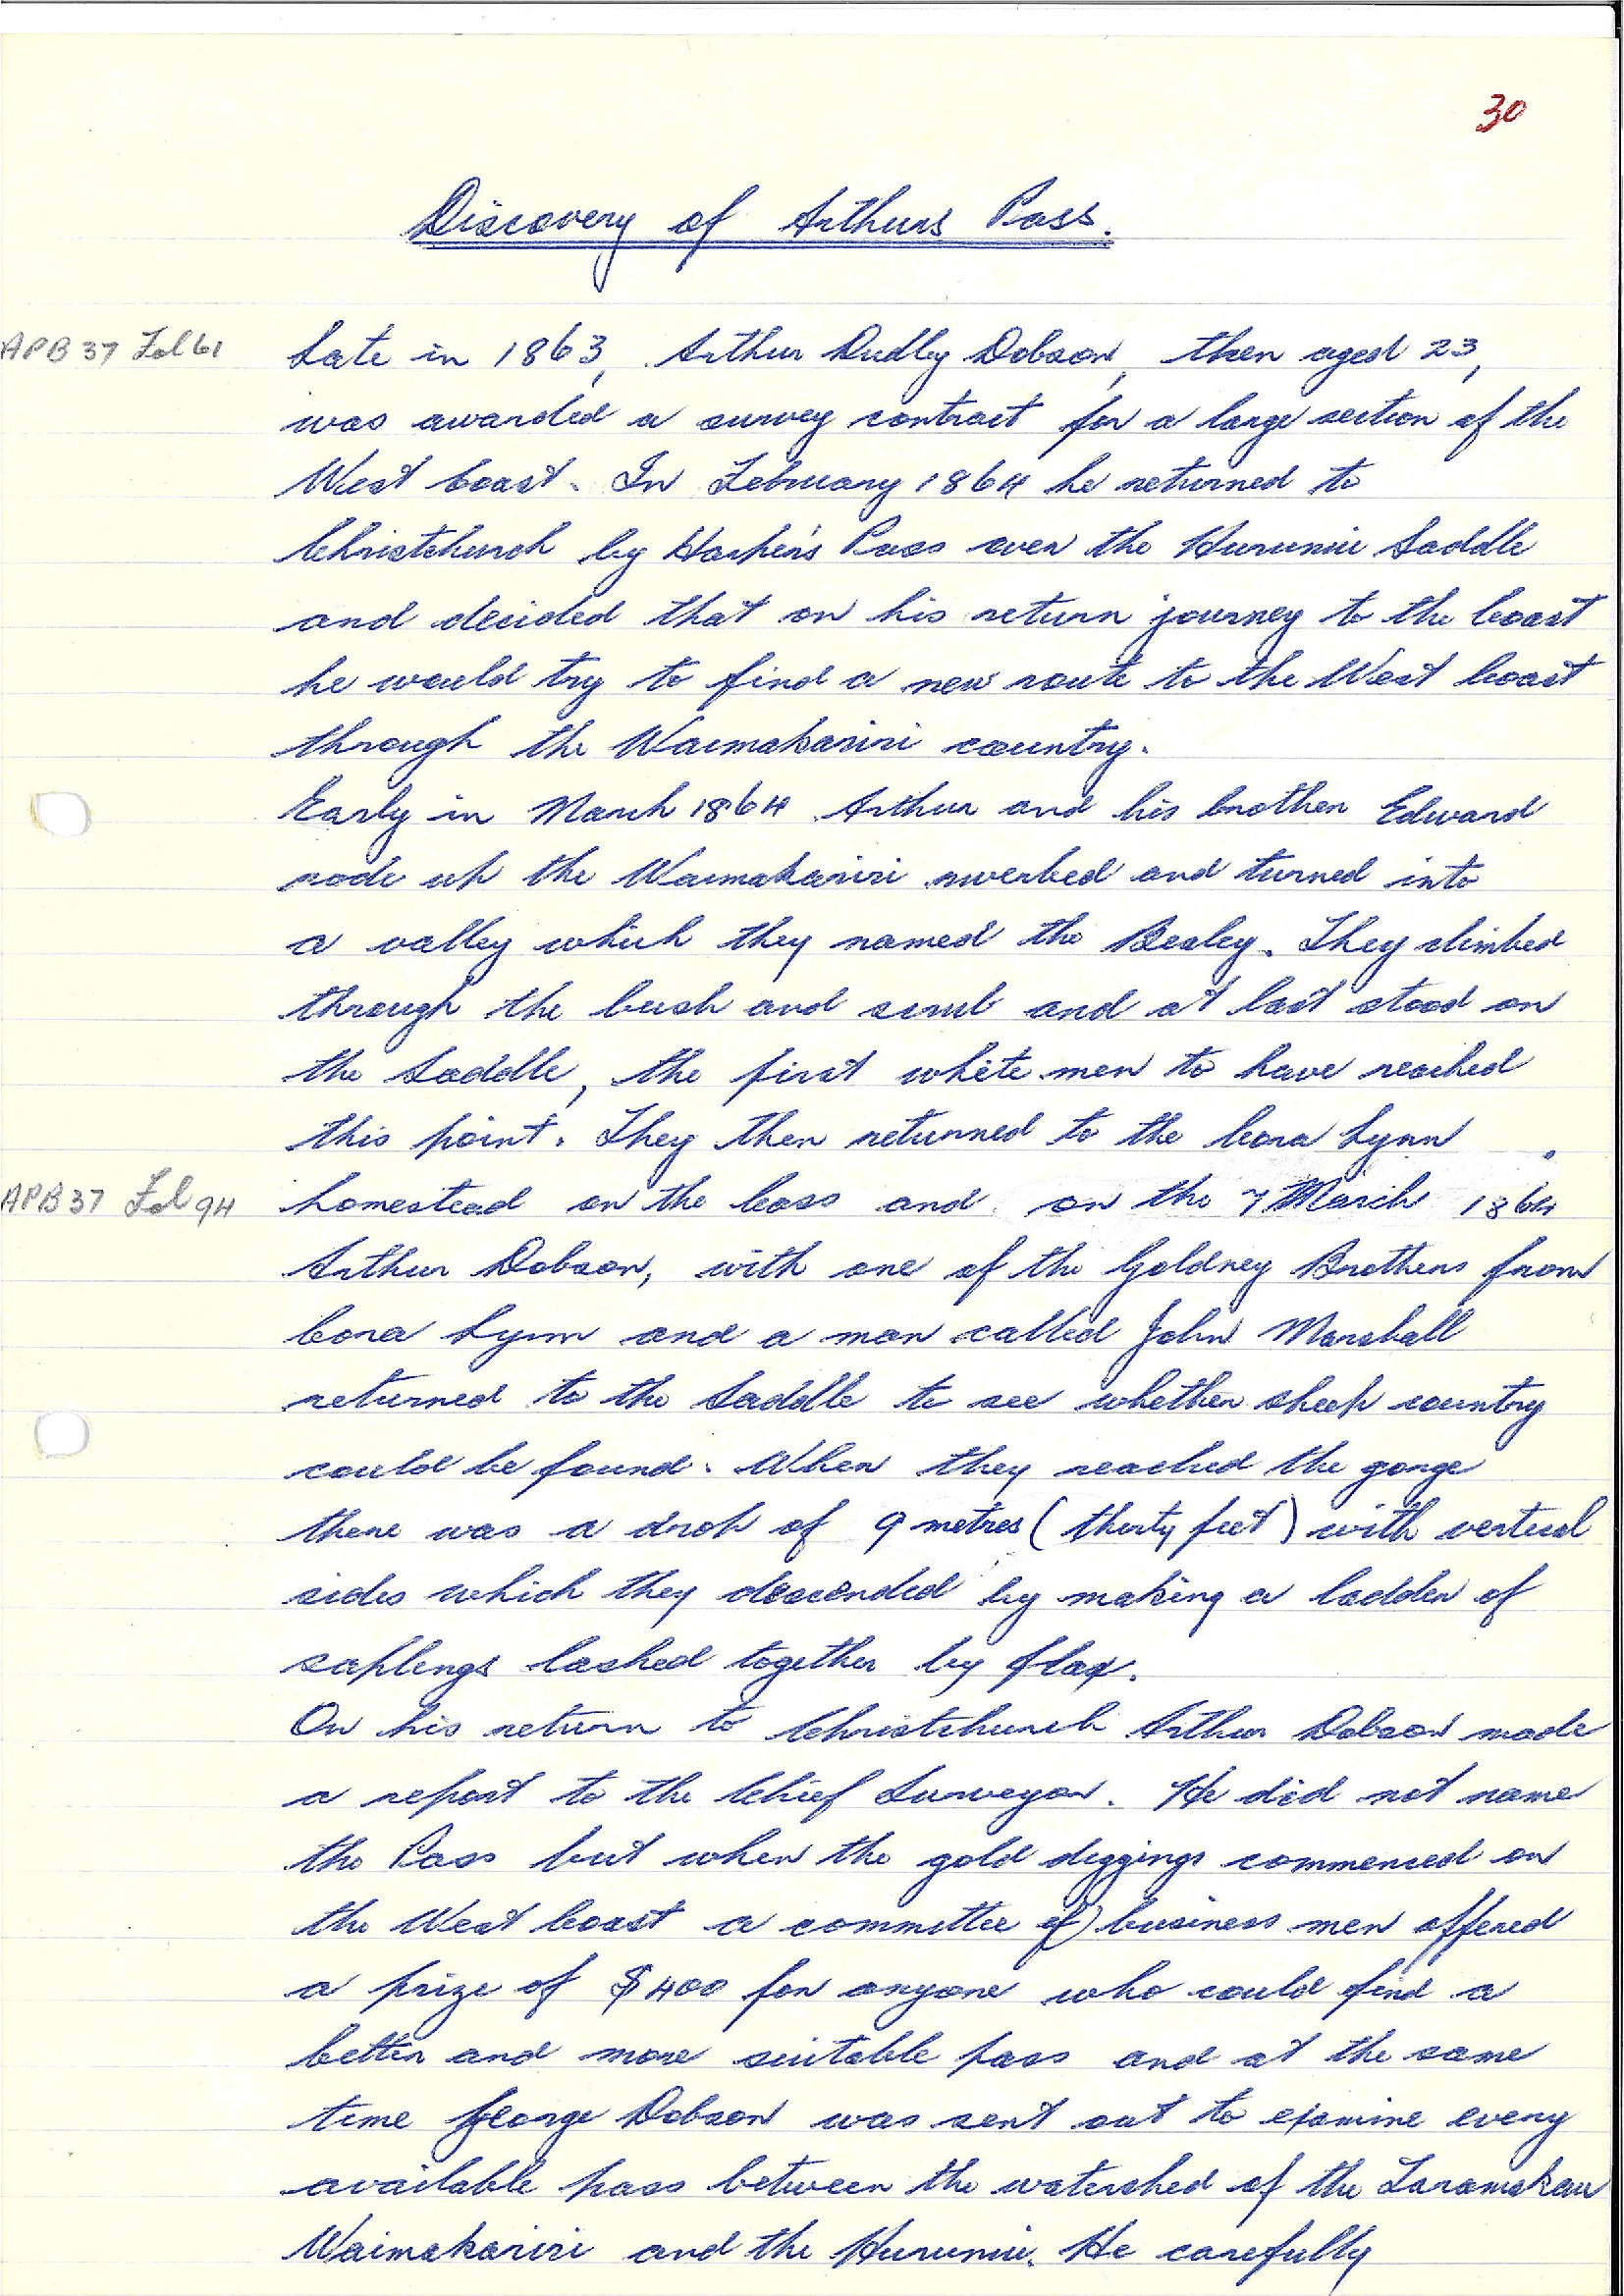 30
Discovery of Arthurs Pass.
APB 37 Fol 61
Late in 1863, Arthur Dudley Dobson, then aged 23,
was awarded a survey contract for a large section of the
West Coast. In February 1864 he returned to
Christchurch by Harper's Pass over the Hurunui Saddle
and decided that on his return journey to the Coast
he would try to find a new route to the West Coast
through the Waimakariri country.
Early in March 1864 Arthur and his brother Edward
rode up the Waimakariri riverbed and turned into
a valley which they named the Bealey. They climbed
through the bush and scrub and at last stood on
the Saddle, the first white men to have reached
this point. They then returned to the Cora Lynn
APB 37 Fol 94
homestead on the Cass and on the 7 March 1864
Arthur Dobson, with one of the Goldney Brothers from
Cora Lynn and a man called John Marshall
returned to the Saddle to see whether sheep country
could be found. When they reached the gorge
there was a drop of 9 metres (thirty feet) with vertical
sides which they descended by making a ladder of
saplings lashed together by flax.
On his return to Christchurch Arthur Dobson made
a report to the Chief Surveyor. He did not name
the Pass but when the gold diggings commenced on
the West Coast a committee of business men offered
a prize of $400 for anyone who could find a
better and more suitable pass and at the same
time George Dobson was sent out to examine every
available pass between the watershed of the Taramakau
Waimakariri and the Hurunui. He carefully